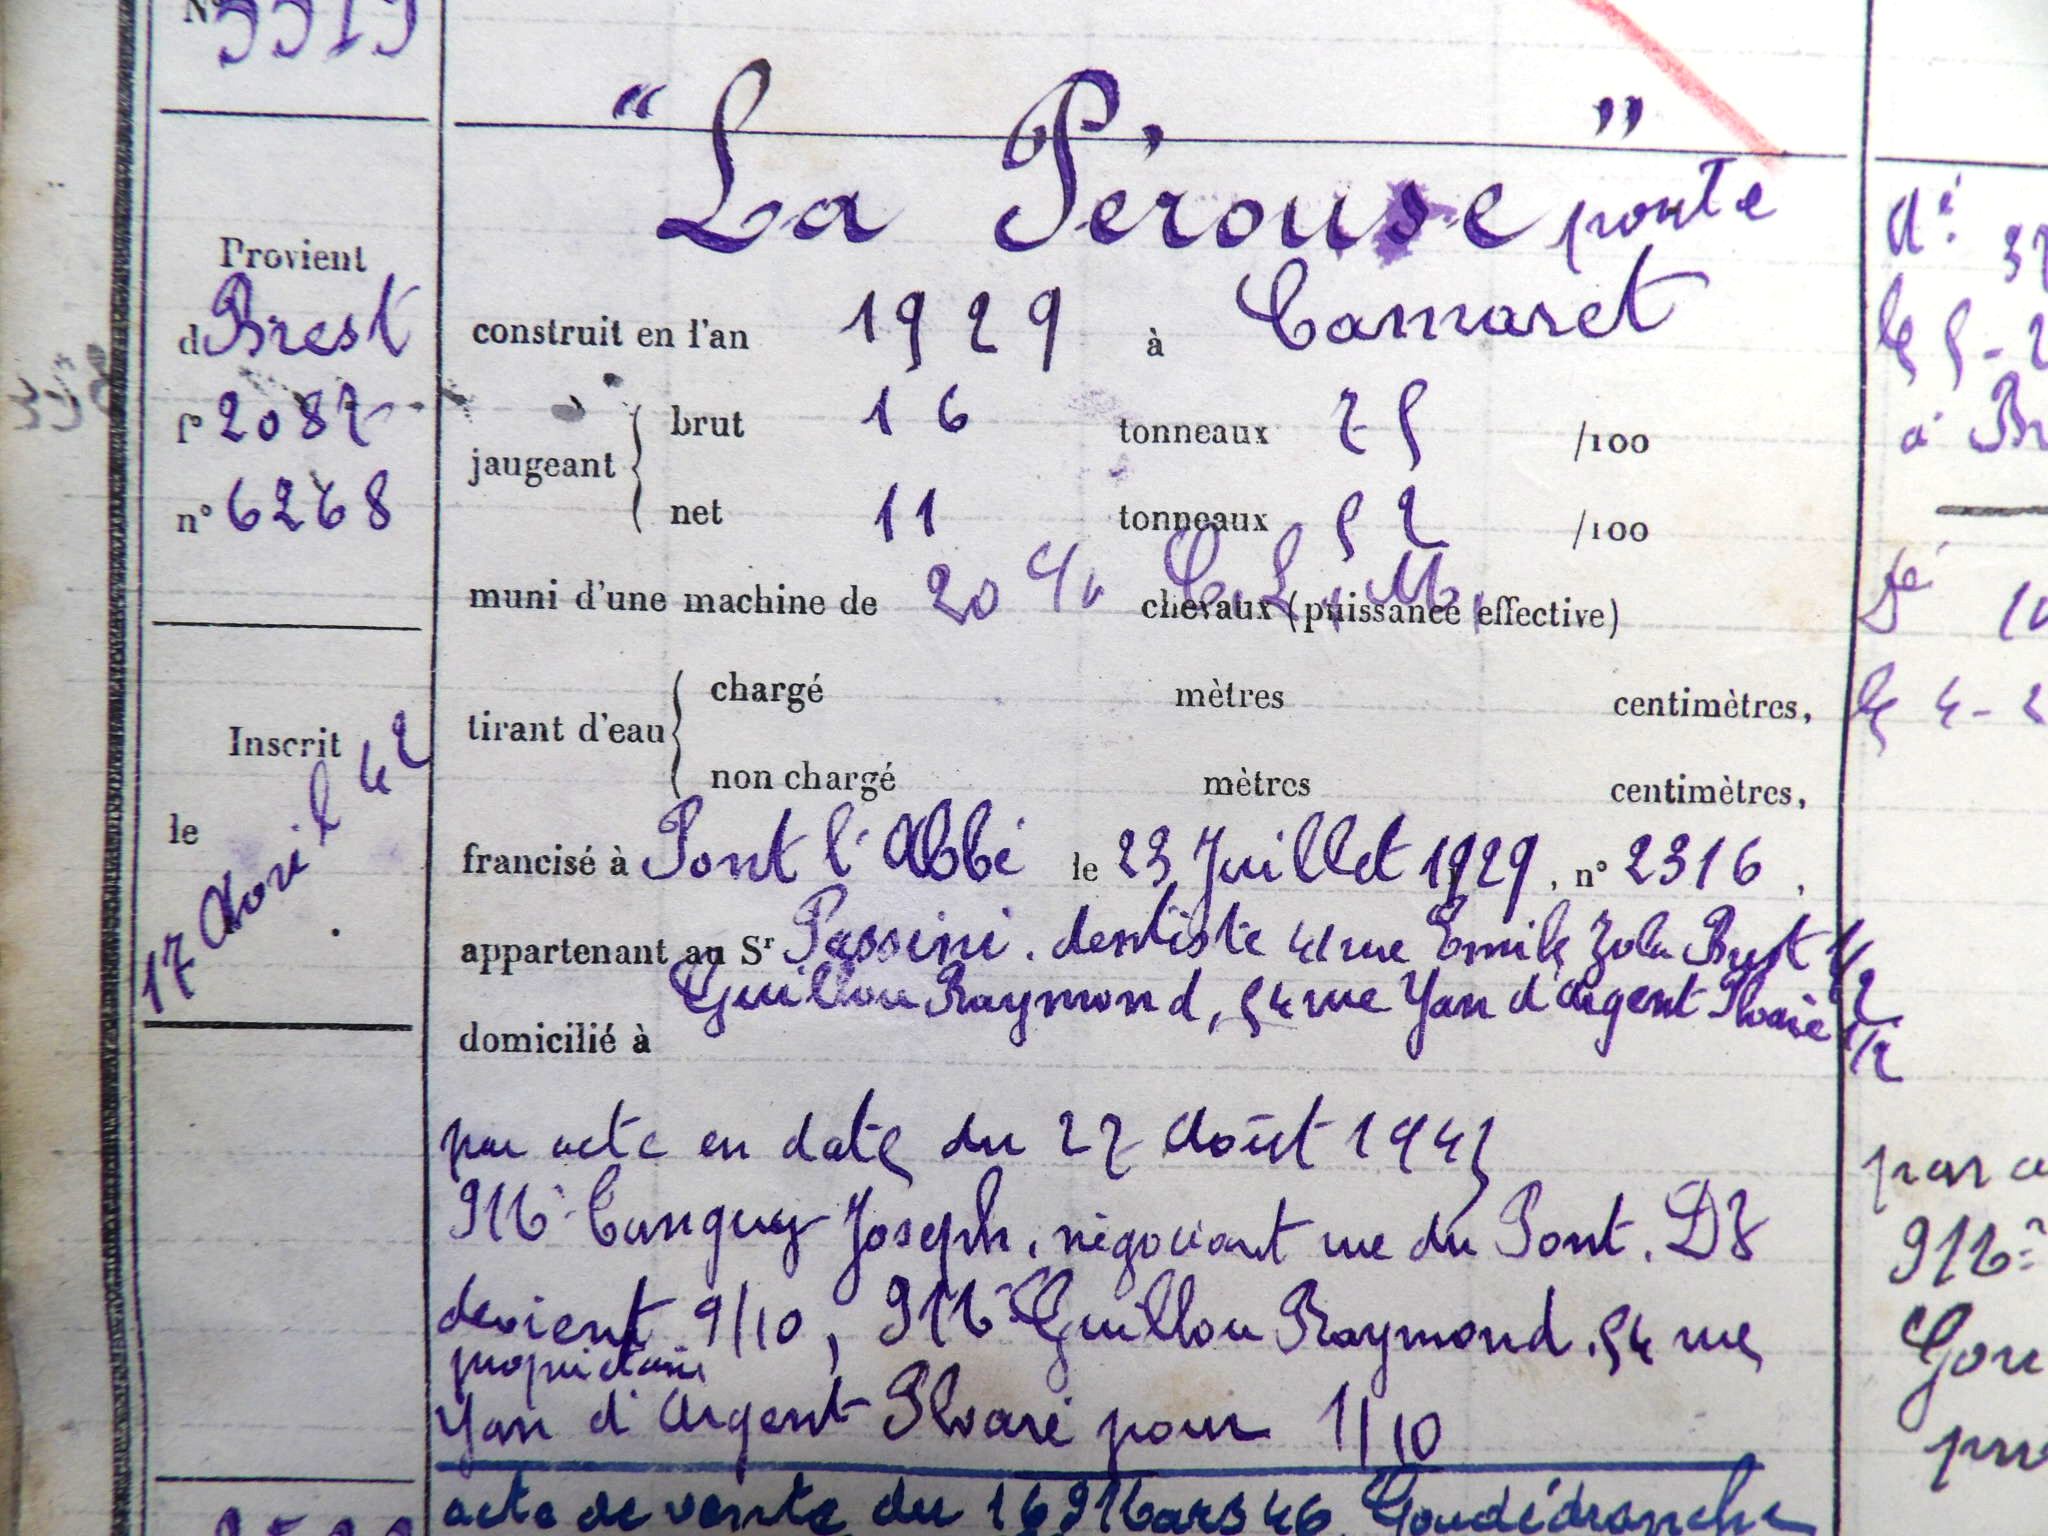 N° 3519
" La Pérouse " ponté
Provient
d Brest
f° 2087
n° 6268
construit en l'an 1929 à Camaret
jaugeant { brut 16 tonneaux 75 /100
net 11 tonneaux 52 /100
muni d'une machine de 20 C.L.M. chevaux (puissance effective)
tirant d'eau { chargé mètres centimètres,
non chargé mètres centimètres,
Inscrit
le 17 Avril 42
francisé à Pont l'Abbé le 23 Juillet 1929, n° 2316,
appartenant au Sr Passini. dentiste 41 rue Emile Zola Brest 1/2
Guillou Raymond, 54 rue Yan d'Argent 1/2
domicilié à
par acte en date du 27 Août 1943
Mr Tanguy Joseph, négociant rue du Pont. DZ
devient 9/10, Mr Guillou Raymond. 54 rue
propriétaire
Yan d'Argent pour 1/10
acte de vente du 16 Mars 46
dé
le 5-2
à Br
le 4-2
par a
Mr
Gou